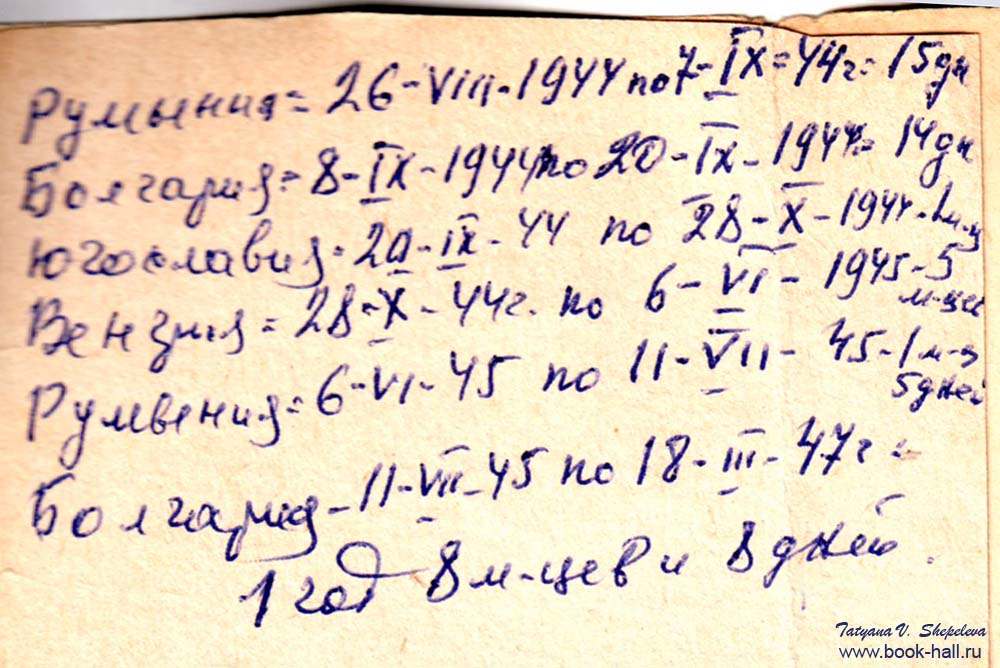 Румыния = 26-VIII-1944 по 7-IX=44г = 15дн
Болгария = 8-IX-1944 по 20-IX-1944 = 14дн
Югославия = 20-IX-44 по 28-X-1944-1м-ц
Венгрия = 28-X-44г. по 6-VI-1945-5
м-цев
Румвения = 6-VI-45 по 11-VII-45-1м-ц
5дней
Болгария - 11-VII-45 по 18-III-47г =
1 год 8 м-цев и 8 дней.
Tatyana V. Shepeleva
www.book-hall.ru